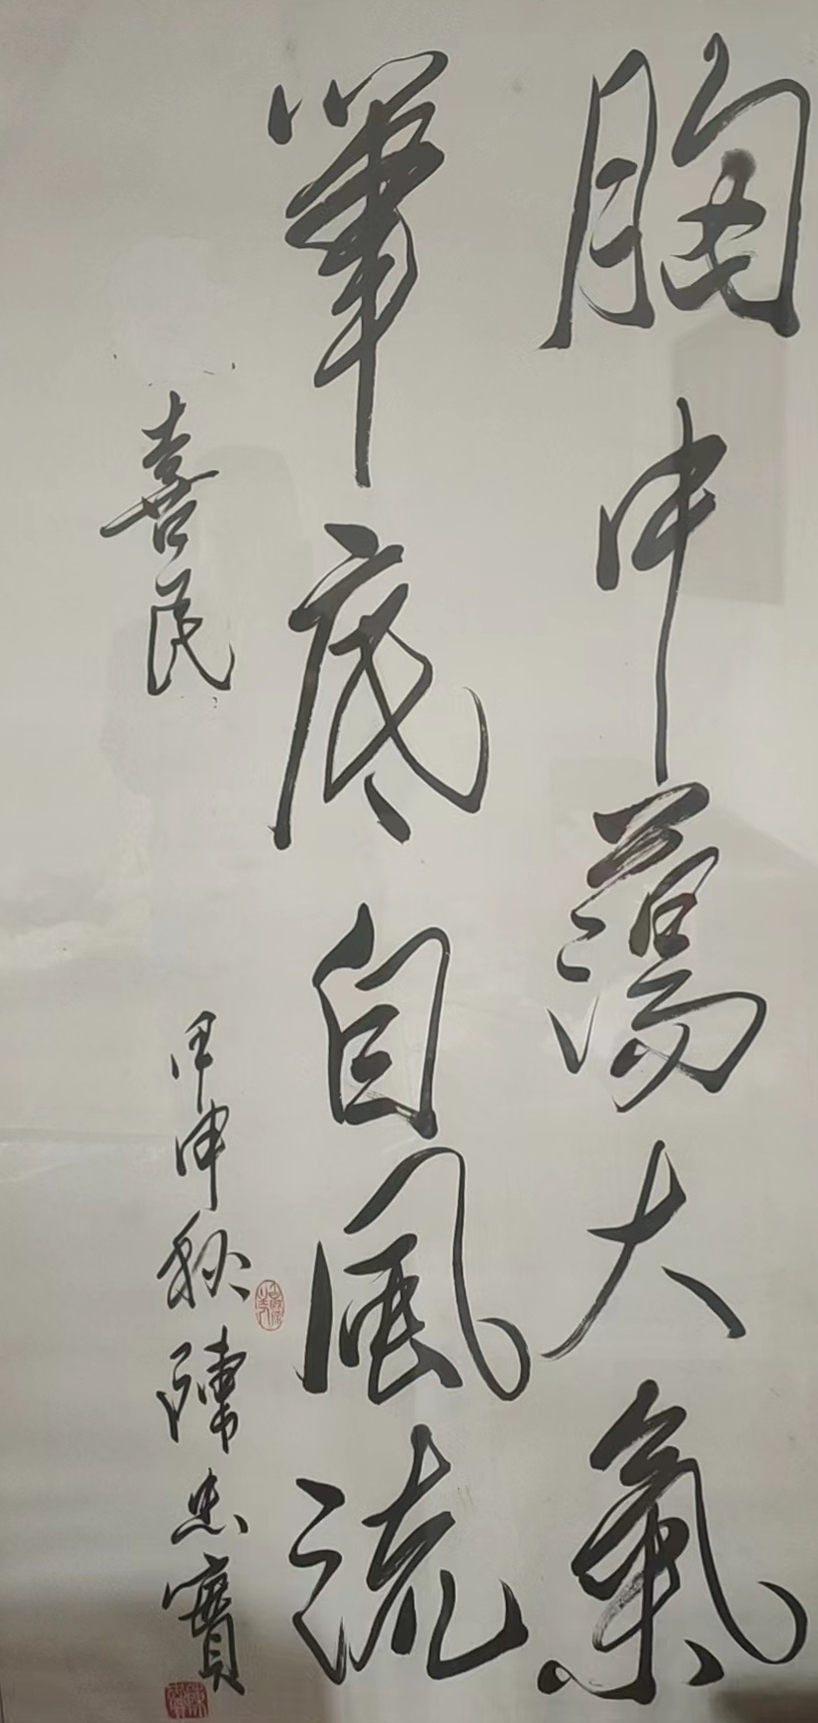 胸中蕩大氣
筆底自風流
喜民
甲申秋 陳忠實